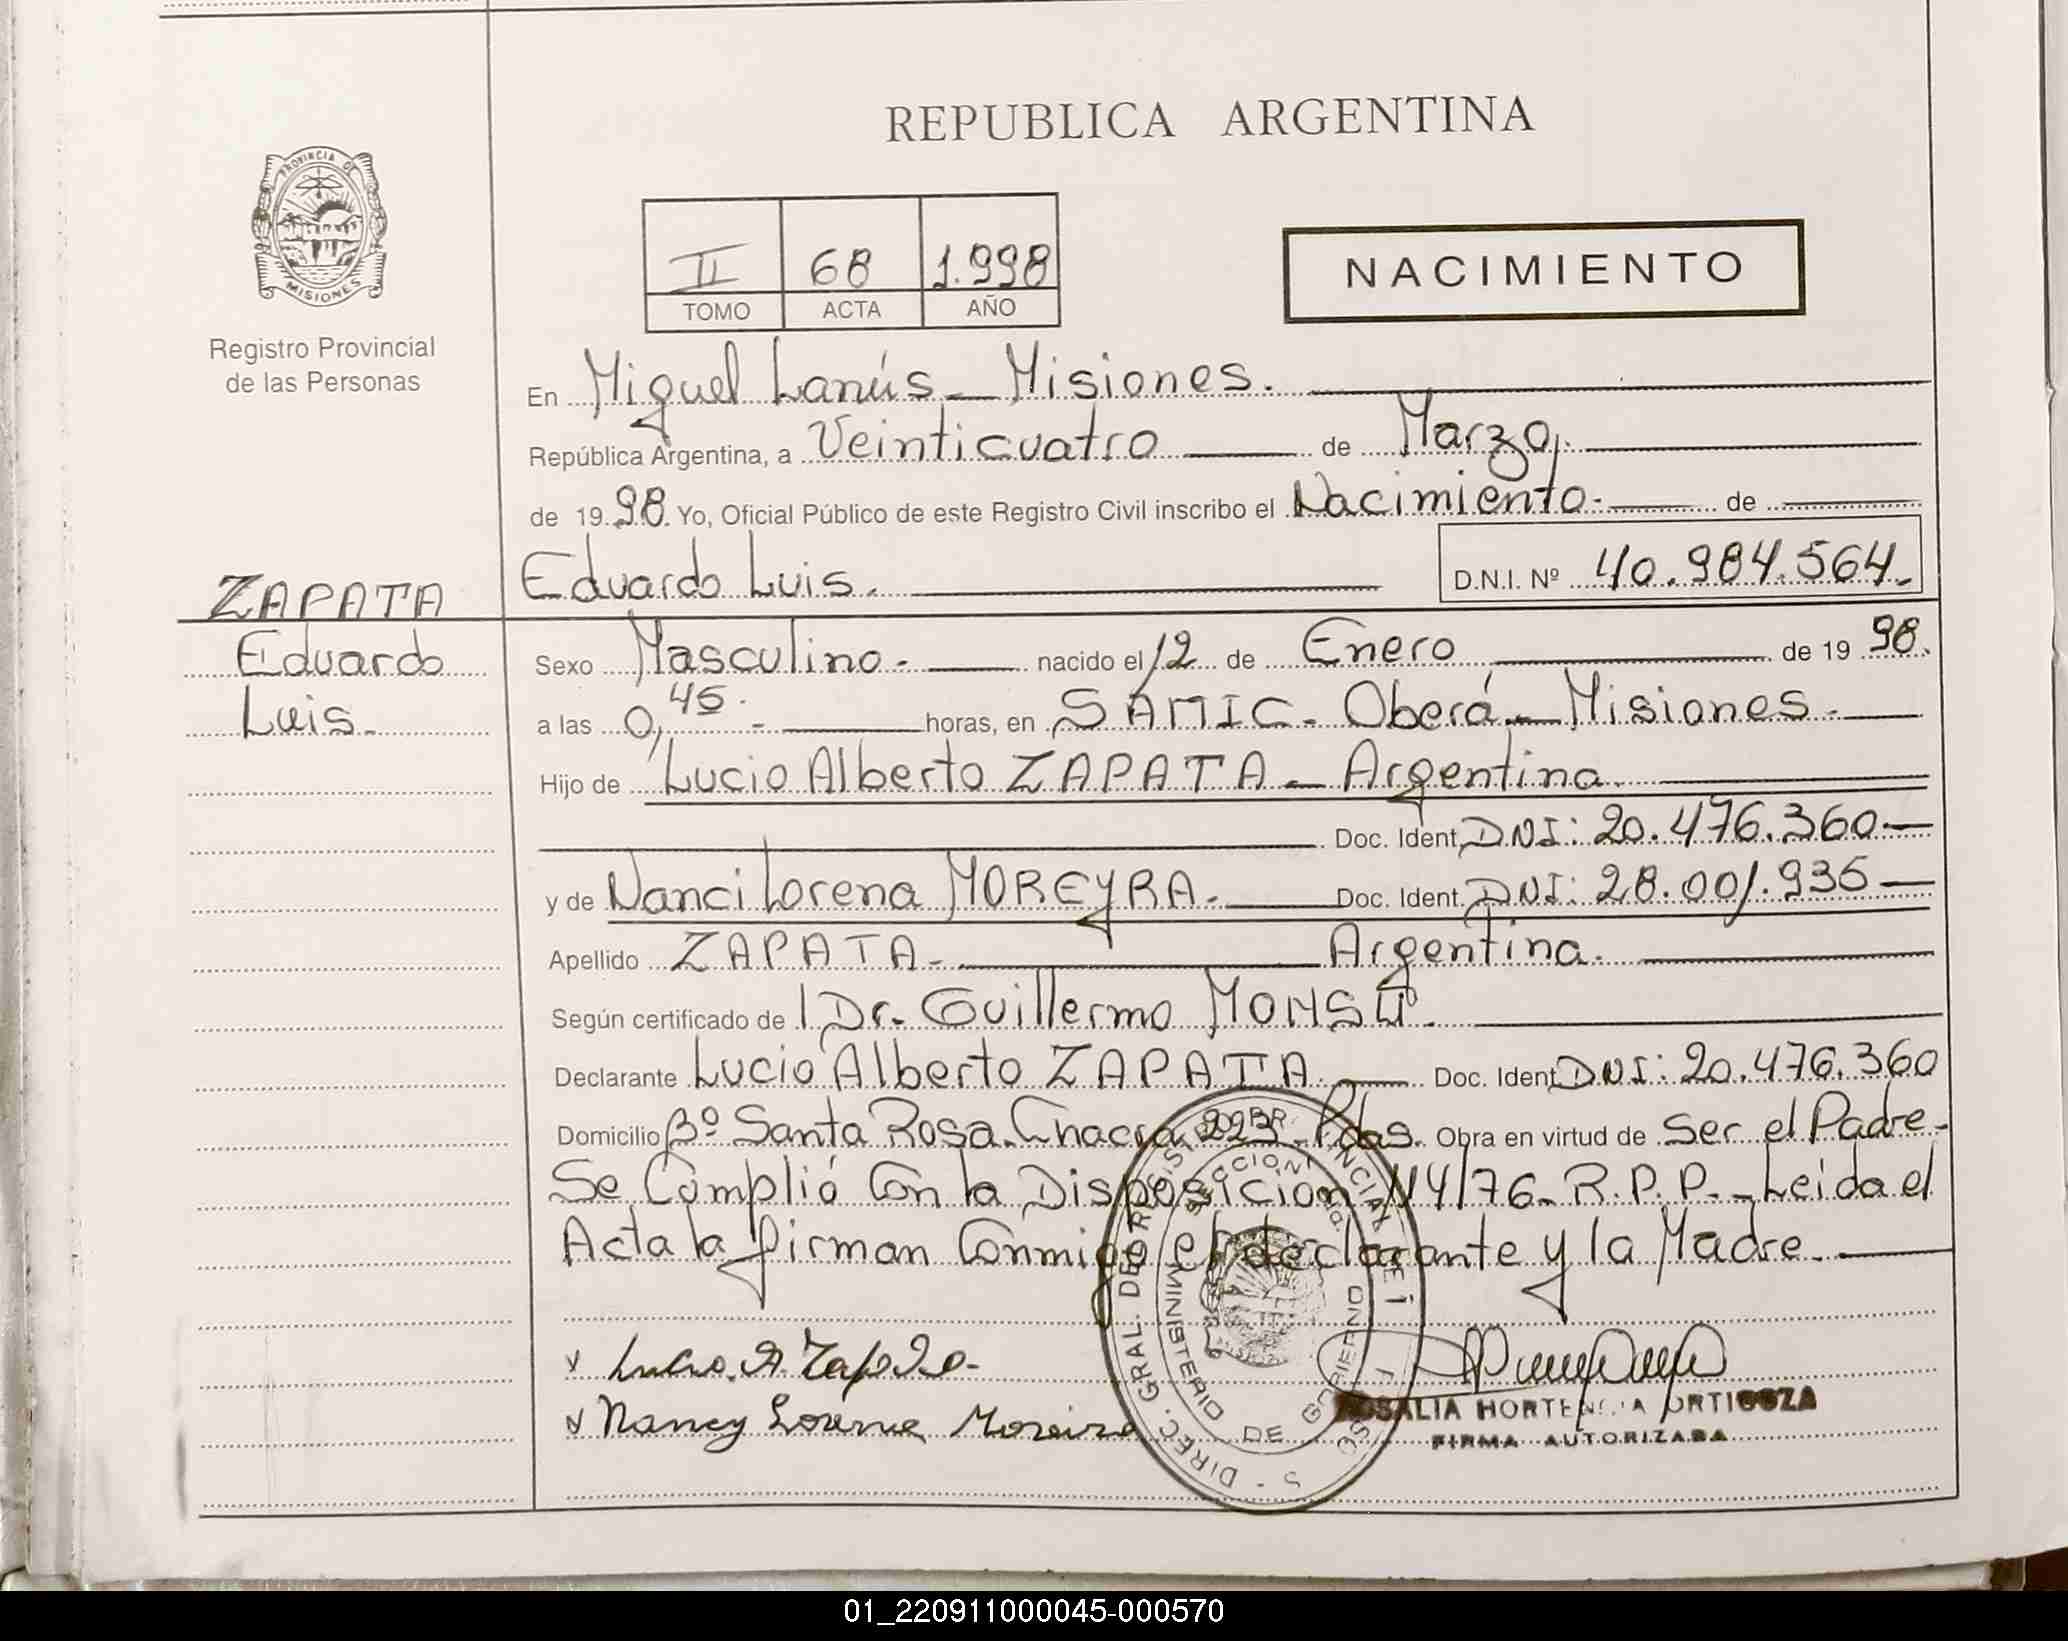 REPUBLICA ARGENTINA
PROVINCIA DE
MISIONES
Registro Provincial
de las Personas
II 68 1.998
TOMO ACTA AÑO
NACIMIENTO
En Miguel Lanús - Misiones.
República Argentina, a Veinticuatro de Marzo,
de 1998. Yo, Oficial Público de este Registro Civil inscribo el Nacimiento. de
Eduardo Luis. D.N.I. Nº 40.984.564.
ZAPATA
Eduardo
Luis.
Sexo Masculino. nacido el 12 de Enero de 1998.
a las 0,45. horas, en SAMIC - Oberá - Misiones.
Hijo de Lucio Alberto ZAPATA - Argentina.
Doc. Ident. DNI: 20.476.360
y de Nanci Lorena MOREYRA. Doc. Ident. DNI: 28.001.935
Apellido ZAPATA. Argentina.
Según certificado de Dr. Guillermo
Declarante Lucio Alberto ZAPATA. Doc. Ident. DNI: 20.476.360
Domicilio Bº Santa Rosa. Chacra 223 - Pdas. Obra en virtud de Ser el Padre -
Se Cumplió Con la Disposición 114/76 - R.P.P. - Leida el
Acta la firman Conmigo el declarante y la Madre.
Lucio A. Zapata
Nancy Lorena Moreira
DIREC. GRAL. DE REGISTRO PROVINCIAL
MINISTERIO DE GOBIERNO
ROSALIA HORTENCIA ORTIGOZA
FIRMA AUTORIZADA
01_220911000045-000570